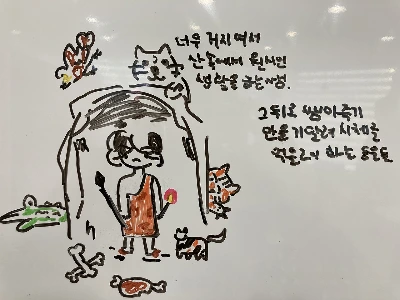 너무 거지여서
산속에서 원시인
생활을 하는 쌤.
그 뒤로 쌤이 죽기
만을 기달려 시체를
먹을라 하는 동물들